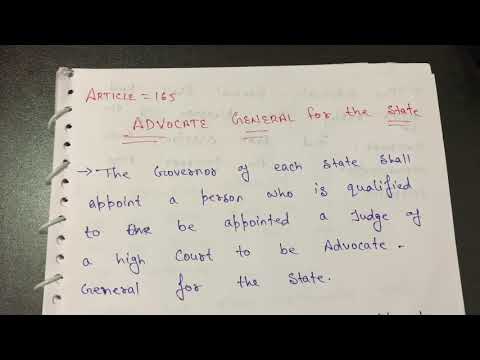 ARTICLE = 165
ADVOCATE GENERAL for the State
→ The Governor of each state shall
appoint a person who is qualified
to be appointed a Judge of
a high Court to be Advocate -
General for the State.